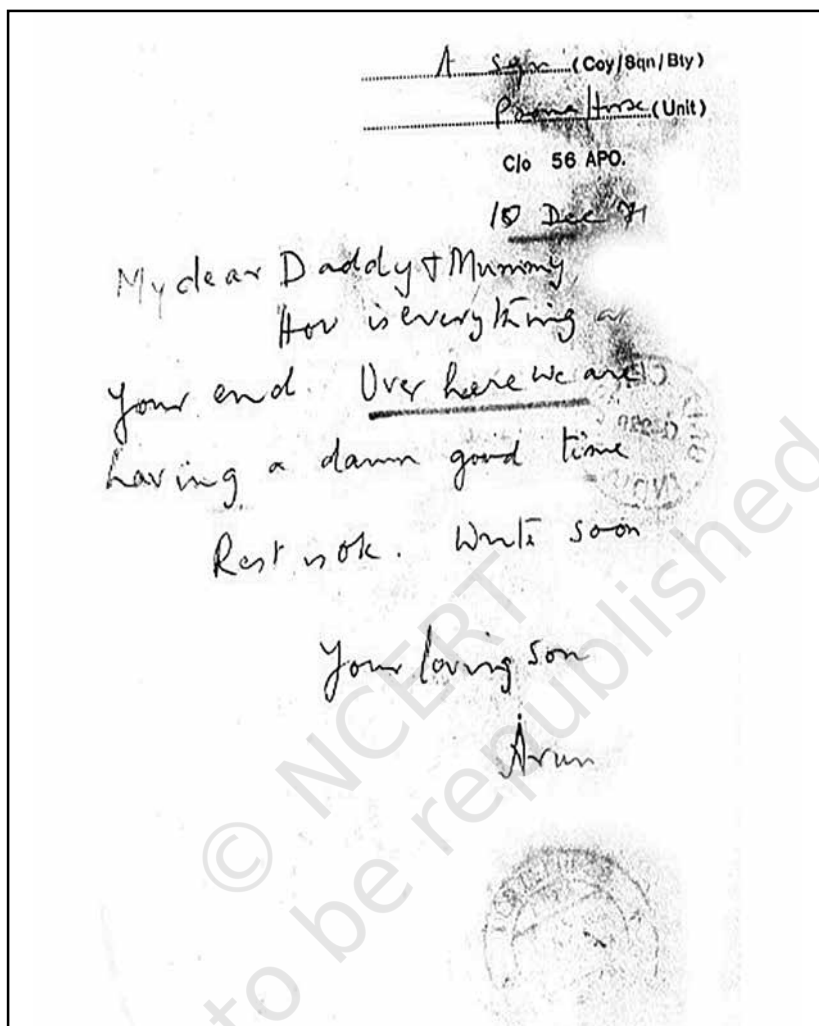 A Sqn (Coy/Sqn/Bty)
Poona Horse (Unit)
C/o 56 APO.
10 Dec 71
My dear Daddy & Mummy,
How is everything at
your end. Over here we are
having a damn good time
Rest is ok. Write soon
Your loving son
Arun
© NCERT
to be republished